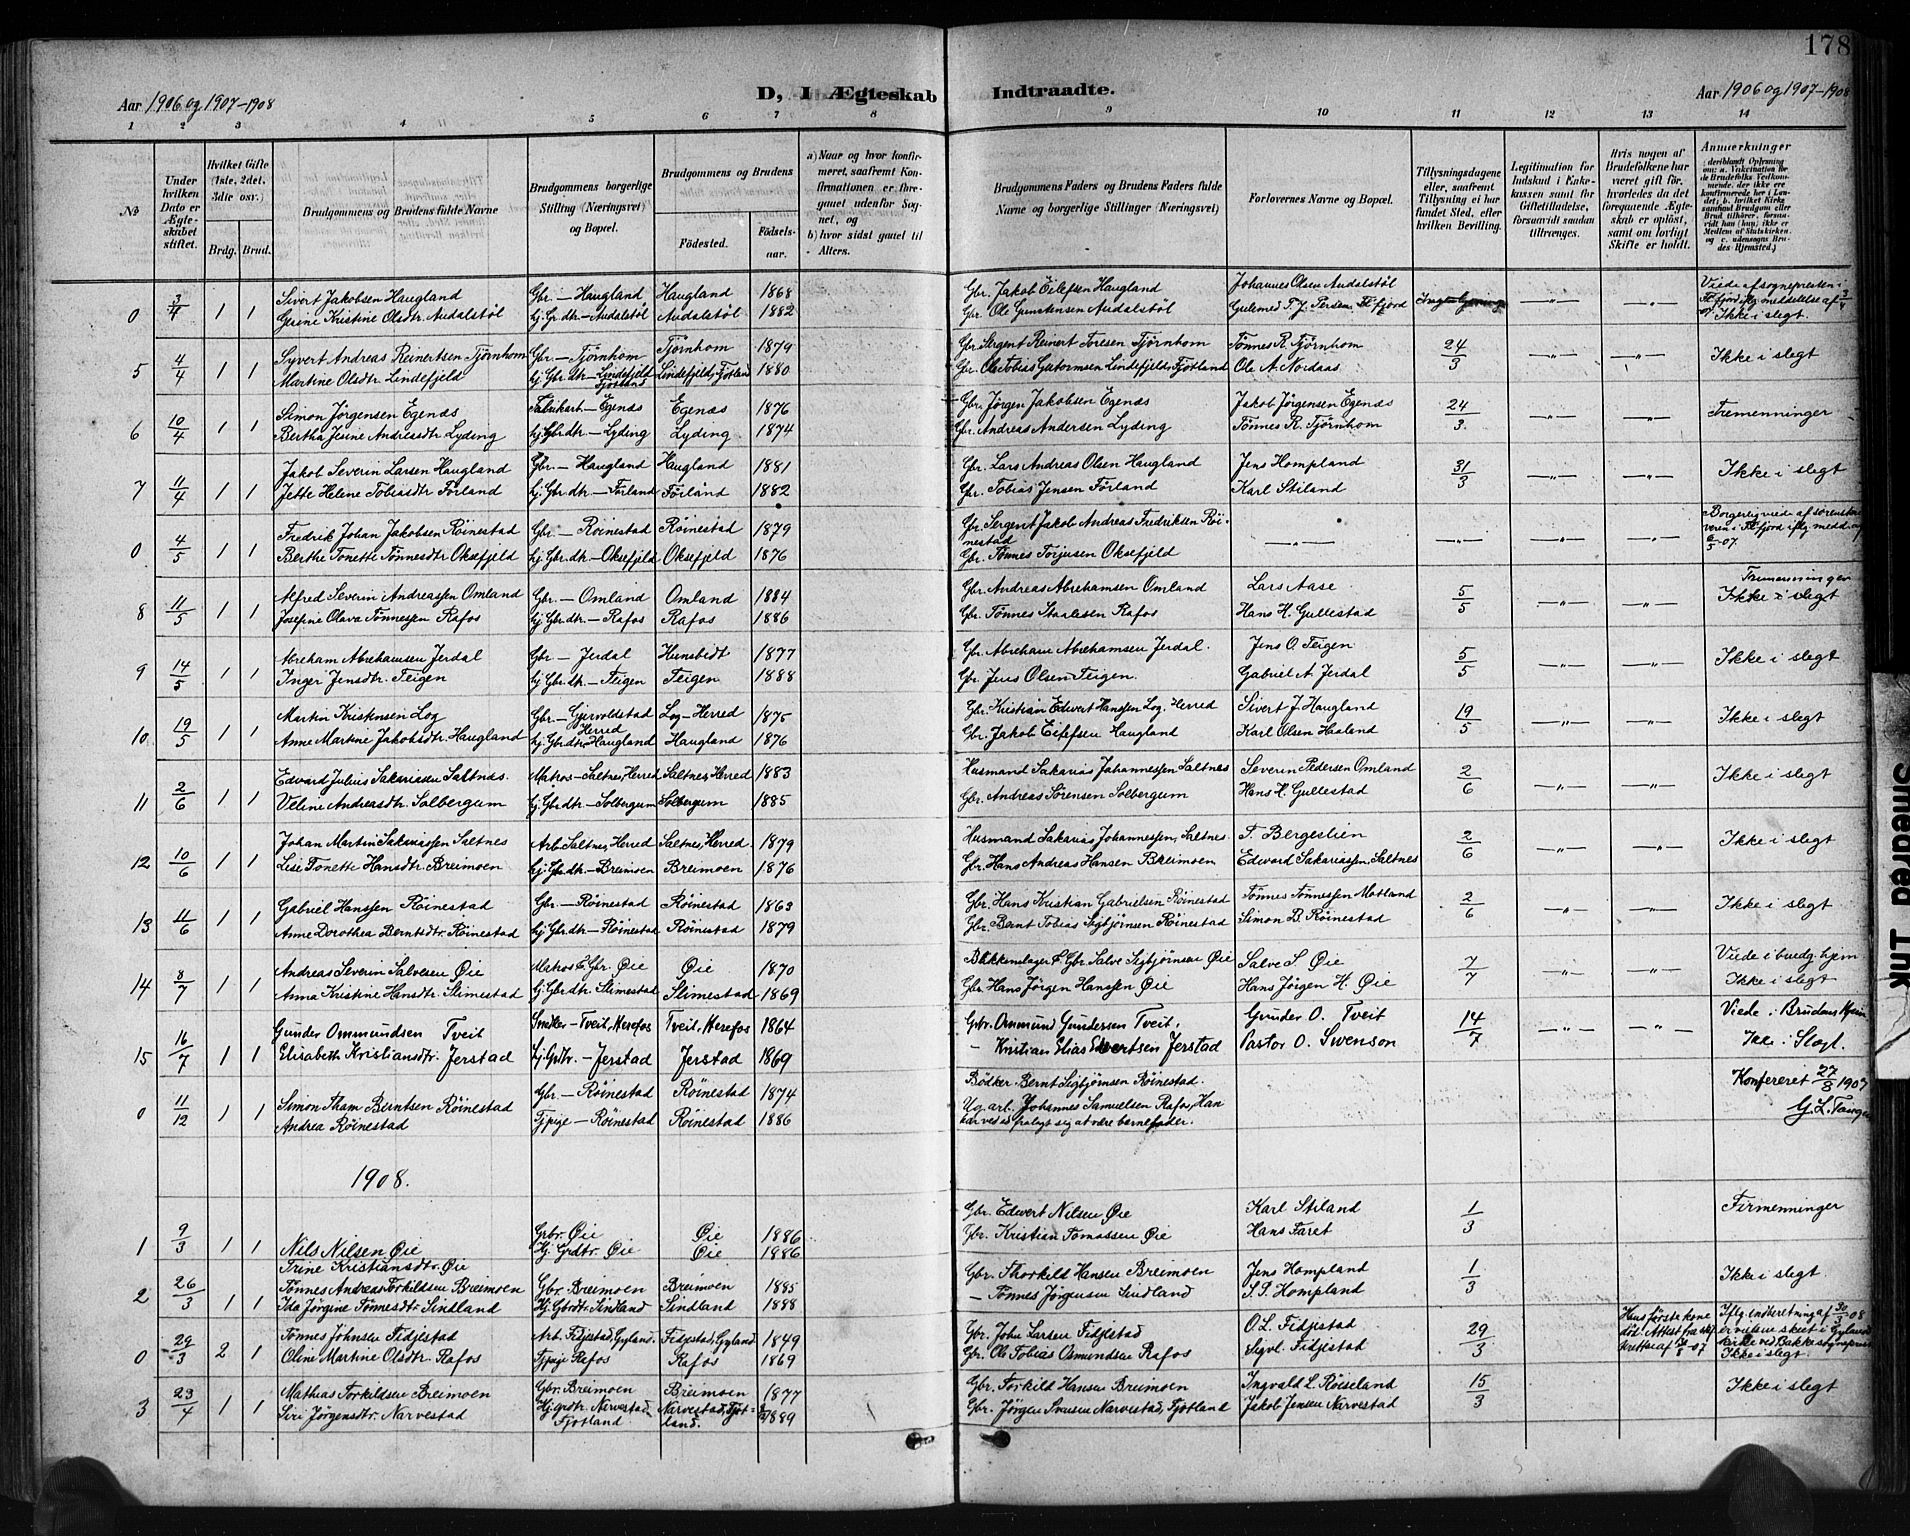 178
Aar 1906 og 1907-1908
D, I Ægteskab Indtraadte.
Aar 1906 og 1907-1908
1 2 3 4 5 6 7 8 9 10 11 12 13 14
No
Under hvilken Dato er Ægteskabet stiftet.
Hvilket Gifte (1ste, 2det, 3die osv.)
Brdg. Brud.
Brudgommens og Brudens fulde Navne
Brudgommens borgerlige Stilling (Næringsvei) og Bopæl.
Brudgommens og Brudens
Fødested. Fødselsaar.
a) Naar og hvor konfirmeret, saafremt Konfirmationen er foregaaet udenfor Sognet, og
b) hvor sidst gaaet til Alters.
Brudgommens Faders og Brudens Faders fulde Navne og borgerlige Stillinger (Næringsvei)
Forlovernes Navne og Bopæl.
Tillysningsdagene eller, saafremt Tillysning ei har fundet Sted, efter hvilken Bevilling.
Legitimation for Indskud i Enkekassen samt for Giftetilladelse, forsaavidt saadan tiltrænges.
Hvis nogen af Brudefolkene har været gift før, hvorledes da det foregaaende Ægteskab er opløst, samt om lovligt Skifte er holdt.
Anmerkninger
0 3/4 1 1 Sivert Jakobsen Haugland Gbr. – Haugland Haugland 1868 Gbr. Jakob Eilefsen Haugland Johannes Olsen Audalstøl
Gusine Kristine Olsdtr. Audalstøl hj. Gbr. dtr – Audalstøl Audalstøl 1882 Gbr. Ole Gunstensen Audalstøl Ikke i slegt.
5 4/4 1 1 Syvert Andreas Reinertsen Tjørnhom Gbr. – Tjørnhom Tjørnhom 1879 Gbr. Sergent Reinert Toresen Tjørnhom Tønnes R. Tjørnhom 24/3 Ikke i slegt
Martine Olsdtr. Lindefjeld hj. Gbr. dtr – Lindefjeld Fjotland Lindefjeld, Fjotland 1880 Gbr. Ole Tobias Guttormsen Lindefjeld, Fjotland Ole A. Nordaas
6 10/4 1 1 Simon Jørgensen Egenæs Fabrikarb. – Egenæs Egenæs 1876 Gbr. Jørgen Jakobsen Egenæs Jakob Jørgensen Egenæs 24/3 Tremenninger
Bertha Jesine Andreasdtr Lyding hj. Gbr. dtr – Lyding Lyding 1874 Gbr. Andreas Andersen Lyding Tønnes R. Tjørnhom
7 11/4 1 1 Jakob Severin Larsen Haugland Gbr. – Haugland Haugland 1881 Gbr. Lars Andreas Olsen Haugland Jens Hompland 31/3 Ikke i slegt
Jette Helene Tobiasdtr Førland hj. Gbr. dtr – Førland Førland 1882 Gbr. Tobias Jensen Førland Karl Stiland
0 4/5 1 1 Fredrik Johan Jakobsen Röinestad Gbr. – Röinestad Röinestad 1879 Gbr. Sergent Jakob Andreas Fredriksen Röinestad Borgerlig viede af sorenskriveren i Flekkefjord iflg. medd. af 6/5 07.
Berthe Tonette Tønnesdtr Oksefjeld hj. Gbr. dtr – Oksefjeld Oksefjeld 1876 Gbr. Tønnes Torjusen Oksefjeld
8 11/5 1 1 Alfred Severin Andreassen Omland Gbr. – Omland Omland 1884 Gbr. Andreas Abrahamsen Omland Lars Aase 5/5 Tremenninger
Josefine Olava Tønnessen Rafos hj. Gbr. dtr – Rafos Rafos 1886 Gbr. Tønnes Staalesen Rafos Hans H. Gullestad Ikke i slegt
9 14/5 1 1 Abraham Abrahamsen Jerdal Gbr. – Jerdal Hunsbedt 1877 Gbr. Abraham Abrahamsen Jerdal. Jens O. Teigen 5/5 Ikke i slegt
Inger Jensdtr. Teigen hj. Gbr. dtr. – Teigen Teigen 1888 Gbr. Jens Olsen Teigen. Gabriel A. Jerdal
10 19/5 1 1 Martin Kristensen Log Gbr. – Gjervoldstad Herred Log – Herred 1875 Gbr. Kristian Edvert Hanssen Log, Herred Sivert J. Haugland 19/5 Ikke i slegt
Anne Martine Jakobsdtr. Haugland hj. Gbr. dtr Haugland Haugland 1876 Gbr. Jakob Eilefsen Haugland Karl Olsen Haaland
11 2/6 1 1 Edvard Julius Sakariasen Saltnes. Matros – Saltnes, Herred Saltnes, Herred 1883 Husmand Sakarias Johannessen Saltnes Severin Pedersen Omland 2/6 Ikke i slegt
Veline Andreasdtr. Solbergum hj. Gbr. dtr – Solbergum Solbergum 1885 Gbr. Andreas Sørensen Solbergum Hans H. Gullestad
12 10/6 1 1 Johan Martin Sakariassen Saltnes Arb. Saltnes, Herred Saltnes, Herred 1879 Husmand Sakarias Johannessen, Saltnes T. Bergeslien 2/6 Ikke i slegt
Lise Tonette Hansdtr. Breimoen hj. Gbr. dtr. – Breimoen Breimoen 1876 Gbr. Hans Andreas Hansen Breimoen Edevard Sakariassen, Saltnes
13 11/6 1 1 Gabriel Hanssen Röinestad Gbr. – Röinestad Röinestad 1863 Gbr. Hans Kristian Gabrielsen Röinestad Tønnes Tønnessen Motland 2/6 Ikke i slegt
Anne Dorothea Berntsdtr. Röinestad hj. Gbr. dtr. – Röinestad Röinestad 1879 Gbr. Bernt Tobias Sigbjørnsen Röinestad Simon B. Röinestad
14 8/7 1 1 Andreas Severin Salvesen Øie Matros & Gbr. Øie Øie 1870 Blikkenslager & Gbr Salve Sigbjørnsen Øie Salve S. Øie 7/7 Viede i brudg. hjem.
Anna Kristine Hansdtr. Slimestad hj. Gbr. dtr. Slimestad Slimestad 1869 Gbr. Hans Jørgen Hanssen Øie Hans Jørgen H. Øie Ikke i slegt
15 16/7 1 1 Gunder Ommundsen Tveit Snedker – Tveit, Herefos Tveit, Herefos 1864 Gbr. Ommund Gundersen Tveit. Gunder O. Tveit 14/7 Viede i Brudens Hjem
Elisabeth Kristiansdtr. Jerstad hj. Grdtr. – Jerstad Jerstad 1869 – Kristian Elias Evertsen Jerstad Pastor O. Swenson Ikke i Slegt.
0 11/12 1 1 Simon Tham Berntsen Röinestad Gbr. – Röinestad Röinestad 1874 Bødker Bernt Sigbjørnsen Röinestad. Konfereret 27/3 1907
Andrea Röinestad Tjpige – Röinestad Röinestad 1886 Ug. arb. Johannes Samuelsen Rafos, Han har vedespaalagt sig at være barnefader. G. L. Tangen
1908.
1 9/3 1 1 Nils Nilsen Øie Grbr. Øie Øie 1886 Gbr. Edvert Nilsen Øie Karl Stiland 1/3 Firmenninger
Trine Kristiansdtr. Øie Hj. Grdtr. Øie Øie 1886 Gbr. Kristian Tomassen Øie Hans Faret
2 26/3 1 1 Tønnes Andreas Torkildsen Breimoen Gbr. Breimoen Breimoen 1885 Gbr. Thorkild Hansen Breimoen Jens Hompland 1/3 Ikke i slegt
Ida Jørgine Tønnesdtr. Sindland Hj. Gbrdtr. Sindland Sindland 1888 – Tønnes Jørgensen Sindland S. S. Hompland
0 29/3 2 1 Tønnes Johnsen Fidjestad Arb. Fidjestad, Gyland. Fidjestad, Gyland 1849 Gbr. John Larsen Fidjestad O. L. Fidjestad 29/3 Hans første kone død.
Oline Martine Olsdtr. Rafos Tjpige Rafos Rafos 1869 Gbr. Ole Tobias Osmundsen Rafos Sigvl. Fidjestad Ikke i slegt.
3 23/4 1 1 Mathias Torkildsen Breimoen Gbr. Breimoen Breimoen 1877 Gbr. Torkild Hansen Breimoen Ingvald L. Röiseland 15/3 Ikke i slegt
Siri Jørgensdtr. Narvestad Hj. grdtr. Narvestad Fjotland Narvestad, Fjotland. 1889 Gbr. Jørgen Svensen Narvestad, Fjotland Jakob Jensen Narvestad
Smeared Ink